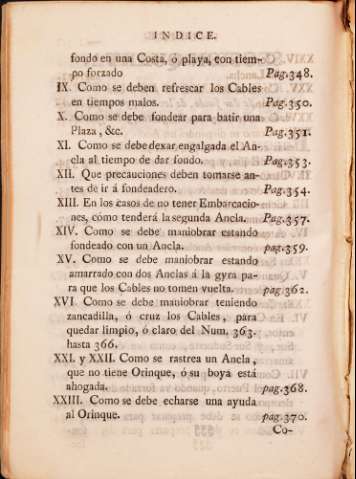 INDICE.
fondo en una Costa, ó playa, con tiem-
po forzado Pag.348.
IX. Como se deben refrescar los Cables
en tiempos malos. Pag.350.
X. Como se debe fondear para batir una
Plaza, &c. Pag.351.
XI. Como se debe dexar engalgada el An-
cla al tiempo de dar fondo. Pag.353.
XII. Que precauciones deben tomarse an-
tes de ir á fondeadero. Pag.354.
XIII. En los casos de no tener Embarcacio-
nes, cómo tenderá la segunda Ancla. Pag.357.
XIV. Como se debe maniobrar estando
fondeado con un Ancla. pag.359.
XV. Como se debe maniobrar estando
amarrado con dos Anclas á la gyra pa-
ra que los Cables no tomen vuelta. pag.362.
XVI. Como se debe maniobrar teniendo
zancadilla, ó cruz los Cables, para
quedar limpio, ó claro del Num. 363.
hasta 366.
XXI. y XXII. Como se rastrea un Ancla,
que no tiene Orinque, ó su boya está
ahogada. pag.368.
XXIII. Como se debe echarse una ayuda
al Orinque. pag.370.
Co-